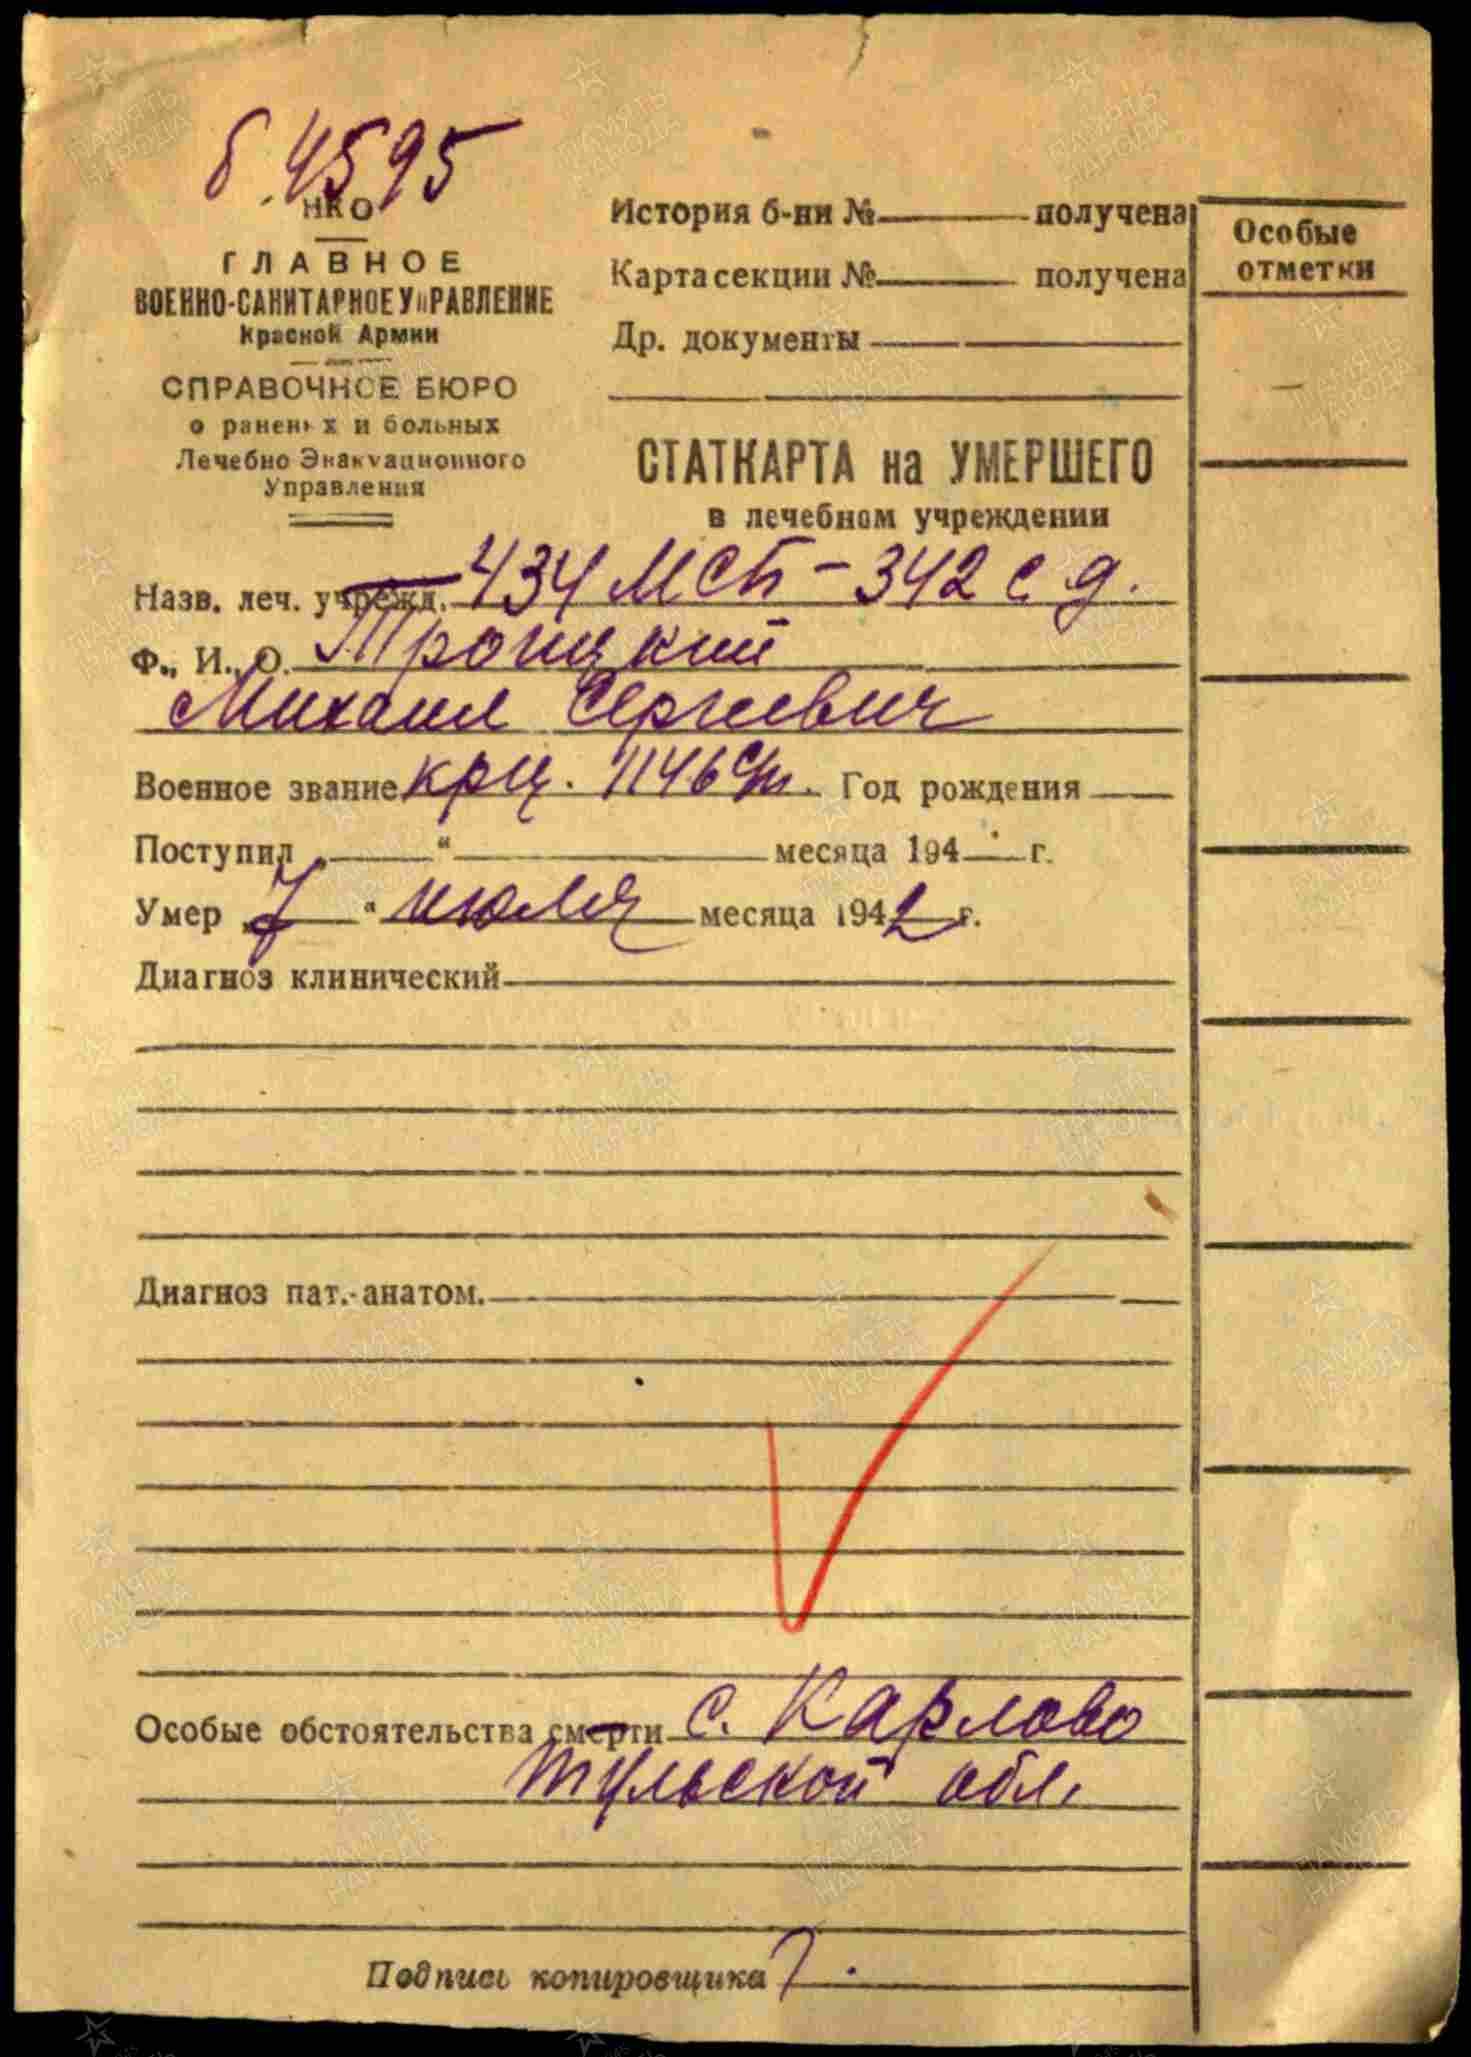 б. 4595
НКО
ГЛАВНОЕ
ВОЕННО-САНИТАРНОЕ УПРАВЛЕНИЕ
Красной Армии
СПРАВОЧНОЕ БЮРО
о раненых и больных
Лечебно Эвакуационного
Управления
История б-ни № получена
Карта секции № получена
Др. документы
Особые
отметки
СТАТКАРТА на УМЕРШЕГО
в лечебном учреждении
Назв. леч. учрежд. 434 МСБ - 342 с д.
Ф., И., О. Троицкий
Михаил Сергеевич
Военное звание крц. 1146 с/п. Год рождения
Поступил „ “ месяца 194 г.
Умер „7“ июля месяца 1942 г.
Диагноз клинический
Диагноз пат.-анатом.
Особые обстоятельства смерти с. Карлово
тульской обл.
Подпись копировщика
ПАМЯТЬ
НАРОДА